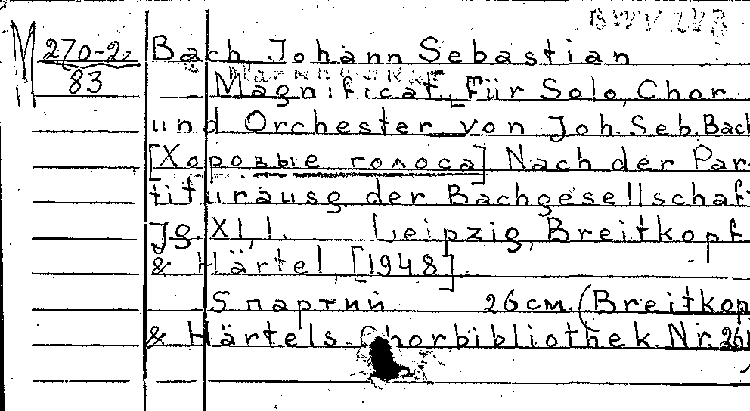 BWV 243
M 270-2
83
Bach, Johann Sebastian
Magnificat, Für Solo, Chor
und Orchester von Joh. Seb. Bach
[Хоровые голоса] Nach der Par
titurausg der Bachgesellschaft
Jg. XI, 1. Leipzig, Breitkopf
& Härtel [1948].
5 партий 26 см. (Breitkop
& Härtels Chorbibliothek. Nr. 26